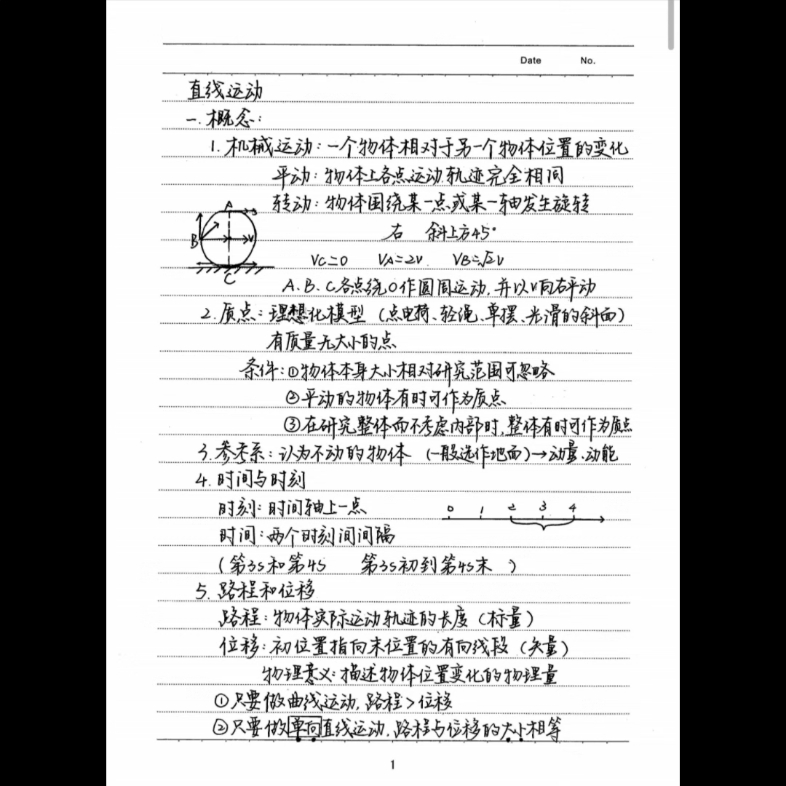 Date No.
直线运动
一.概念:
1.机械运动:一个物体相对于另一个物体位置的变化
平动:物体上各点运动轨迹完全相同
转动:物体围绕某一点或某一轴发生旋转
A
B
V
C
右 斜上方45°
VC=0 VA=2V VB=√2V
A.B.C各点绕O作圆周运动,并以V向右平动
2.质点:理想化模型(点电荷、轻绳、单摆、光滑的斜面)
有质量无大小的点
条件:①物体本身大小相对研究范围可忽略
②平动的物体有时可作为质点
③在研究整体而不考虑内部时,整体有时可作为质点
3.参考系:认为不动的物体 (一般选作地面)→动量.动能
4.时间与时刻
时刻:时间轴上一点
0 1 2 3 4
时间:两个时刻间间隔
(第3s和第4s 第3s初到第4s末 )
5.路程和位移
路程:物体实际运动轨迹的长度(标量)
位移:初位置指向末位置的有向线段(矢量)
物理意义:描述物体位置变化的物理量
①只要做曲线运动,路程>位移
②只要做单向直线运动,路程与位移的大小相等
1